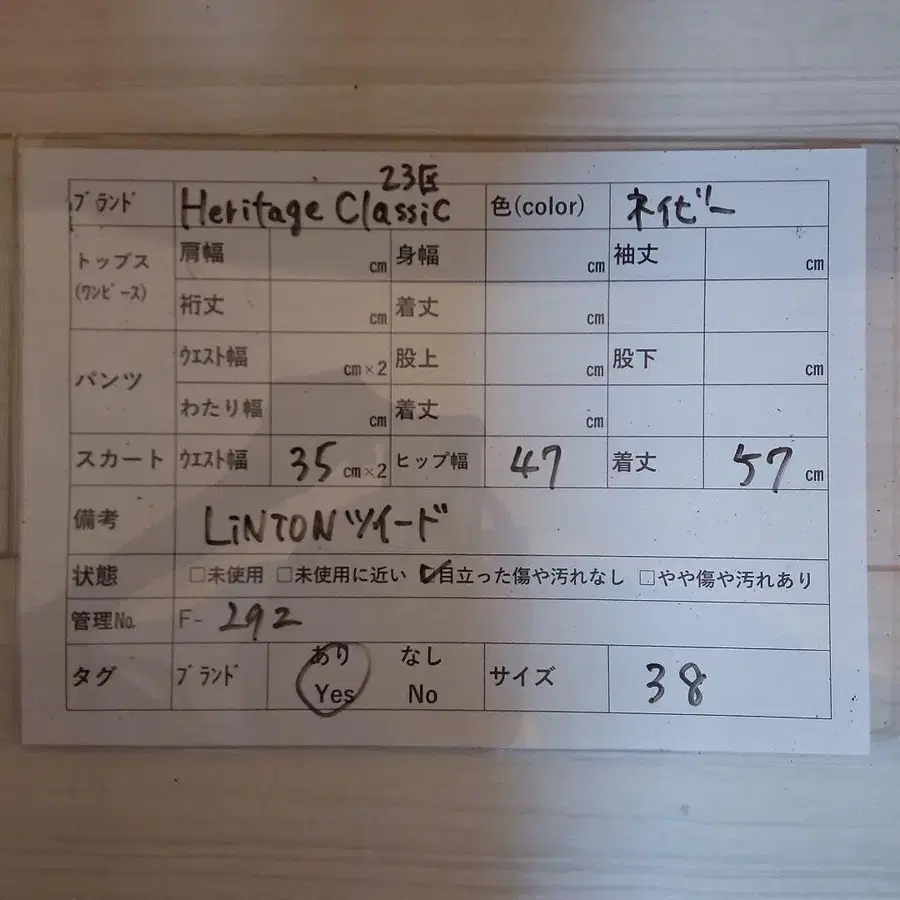 23区
ブランド Heritage Classic 色(color) ネイビー
トップス (ワンピース) 肩幅 cm 身幅 cm 袖丈 cm
裄丈 cm 着丈 cm
パンツ ウエスト幅 cm×2 股上 cm 股下 cm
わたり幅 cm 着丈 cm
スカート ウエスト幅 35 cm×2 ヒップ幅 47 着丈 57 cm
備考 LiNTONツイード
状態 □未使用 □未使用に近い ☑目立った傷や汚れなし □やや傷や汚れあり
管理No. F- 292
タグ ブランド あり Yes なし No サイズ 38